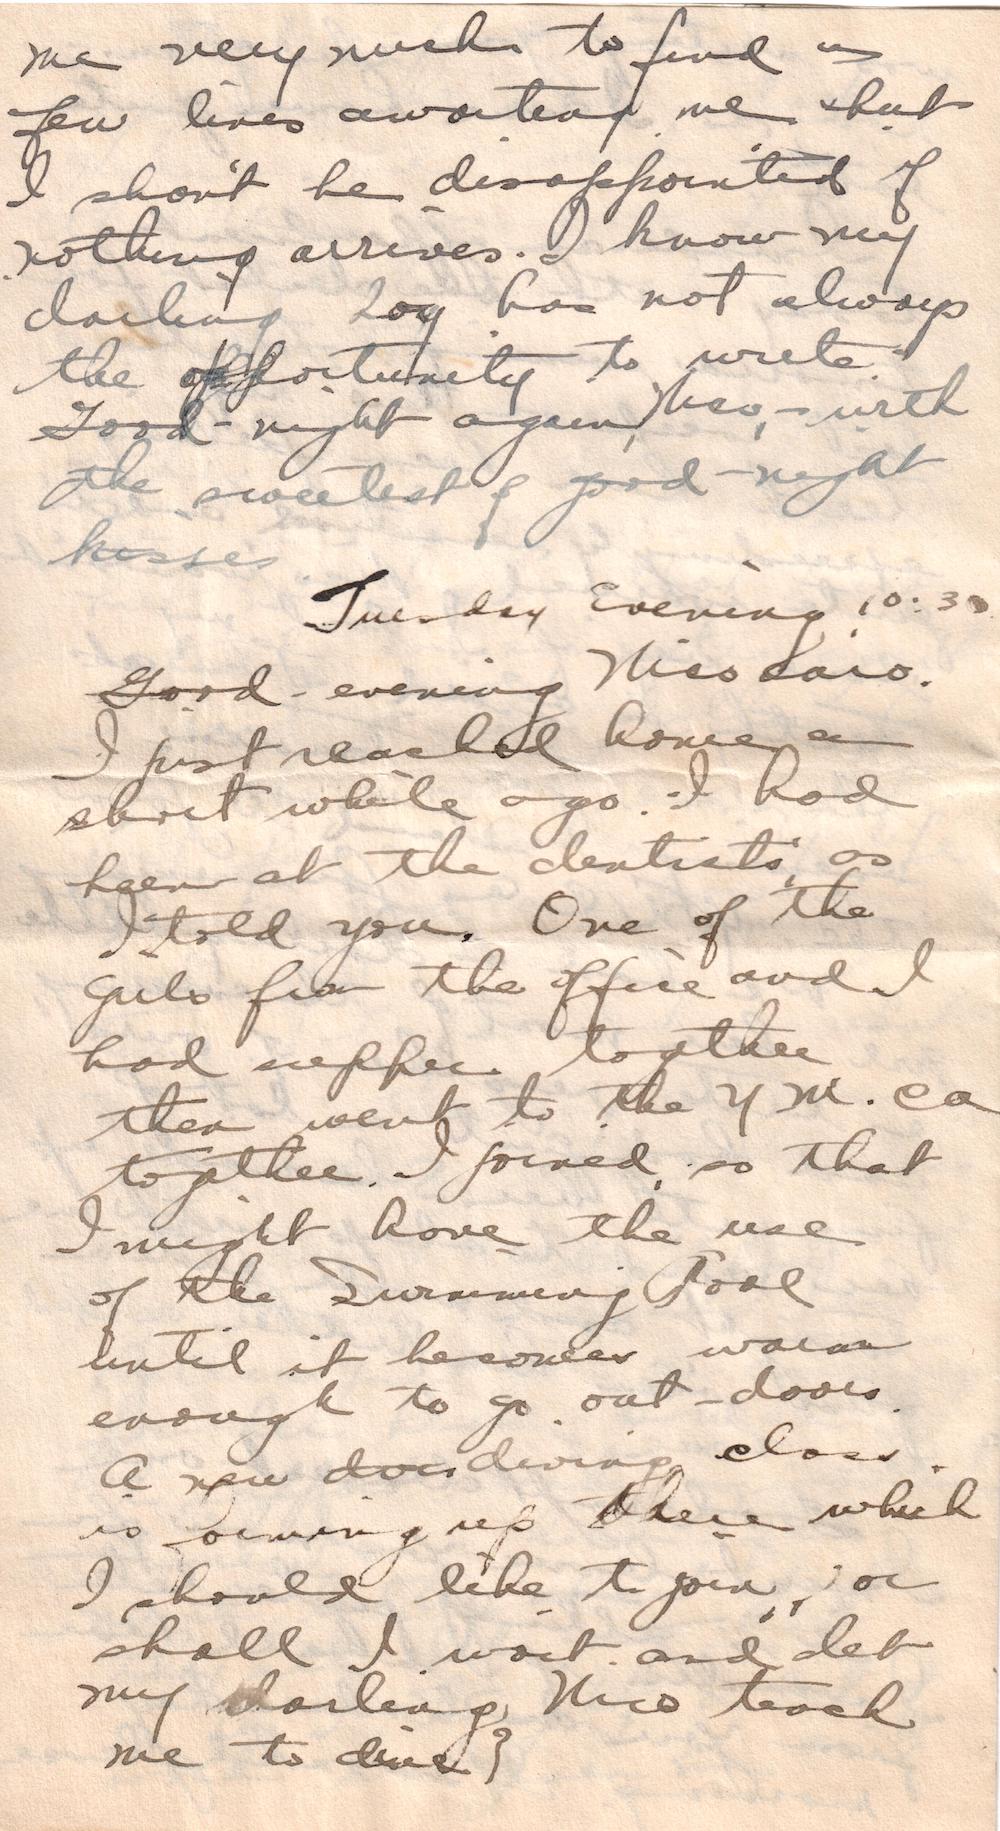 me very much to find a
few lines awaiting me but
I shan't be disappointed if
nothing arrives. I know my
darling boy has not always
the opportunity to write.
Good-night again, Nico, - with
the sweetest of good-night
kisses
Tuesday Evening 10:30
Good-evening Nico caro.
I just reached home a
short while ago. I had
been at the dentists, as
I told you. One of the
girls from the office and I
had supper together
then went to the Y M. Ca
together. I joined, so that
I might have the use
of the Swimming Pool
until it becomes warm
enough to go out-doors.
A new diving class
is forming up there which
I should like to join, or
shall I wait and let
my darling Nico teach
me to dive?